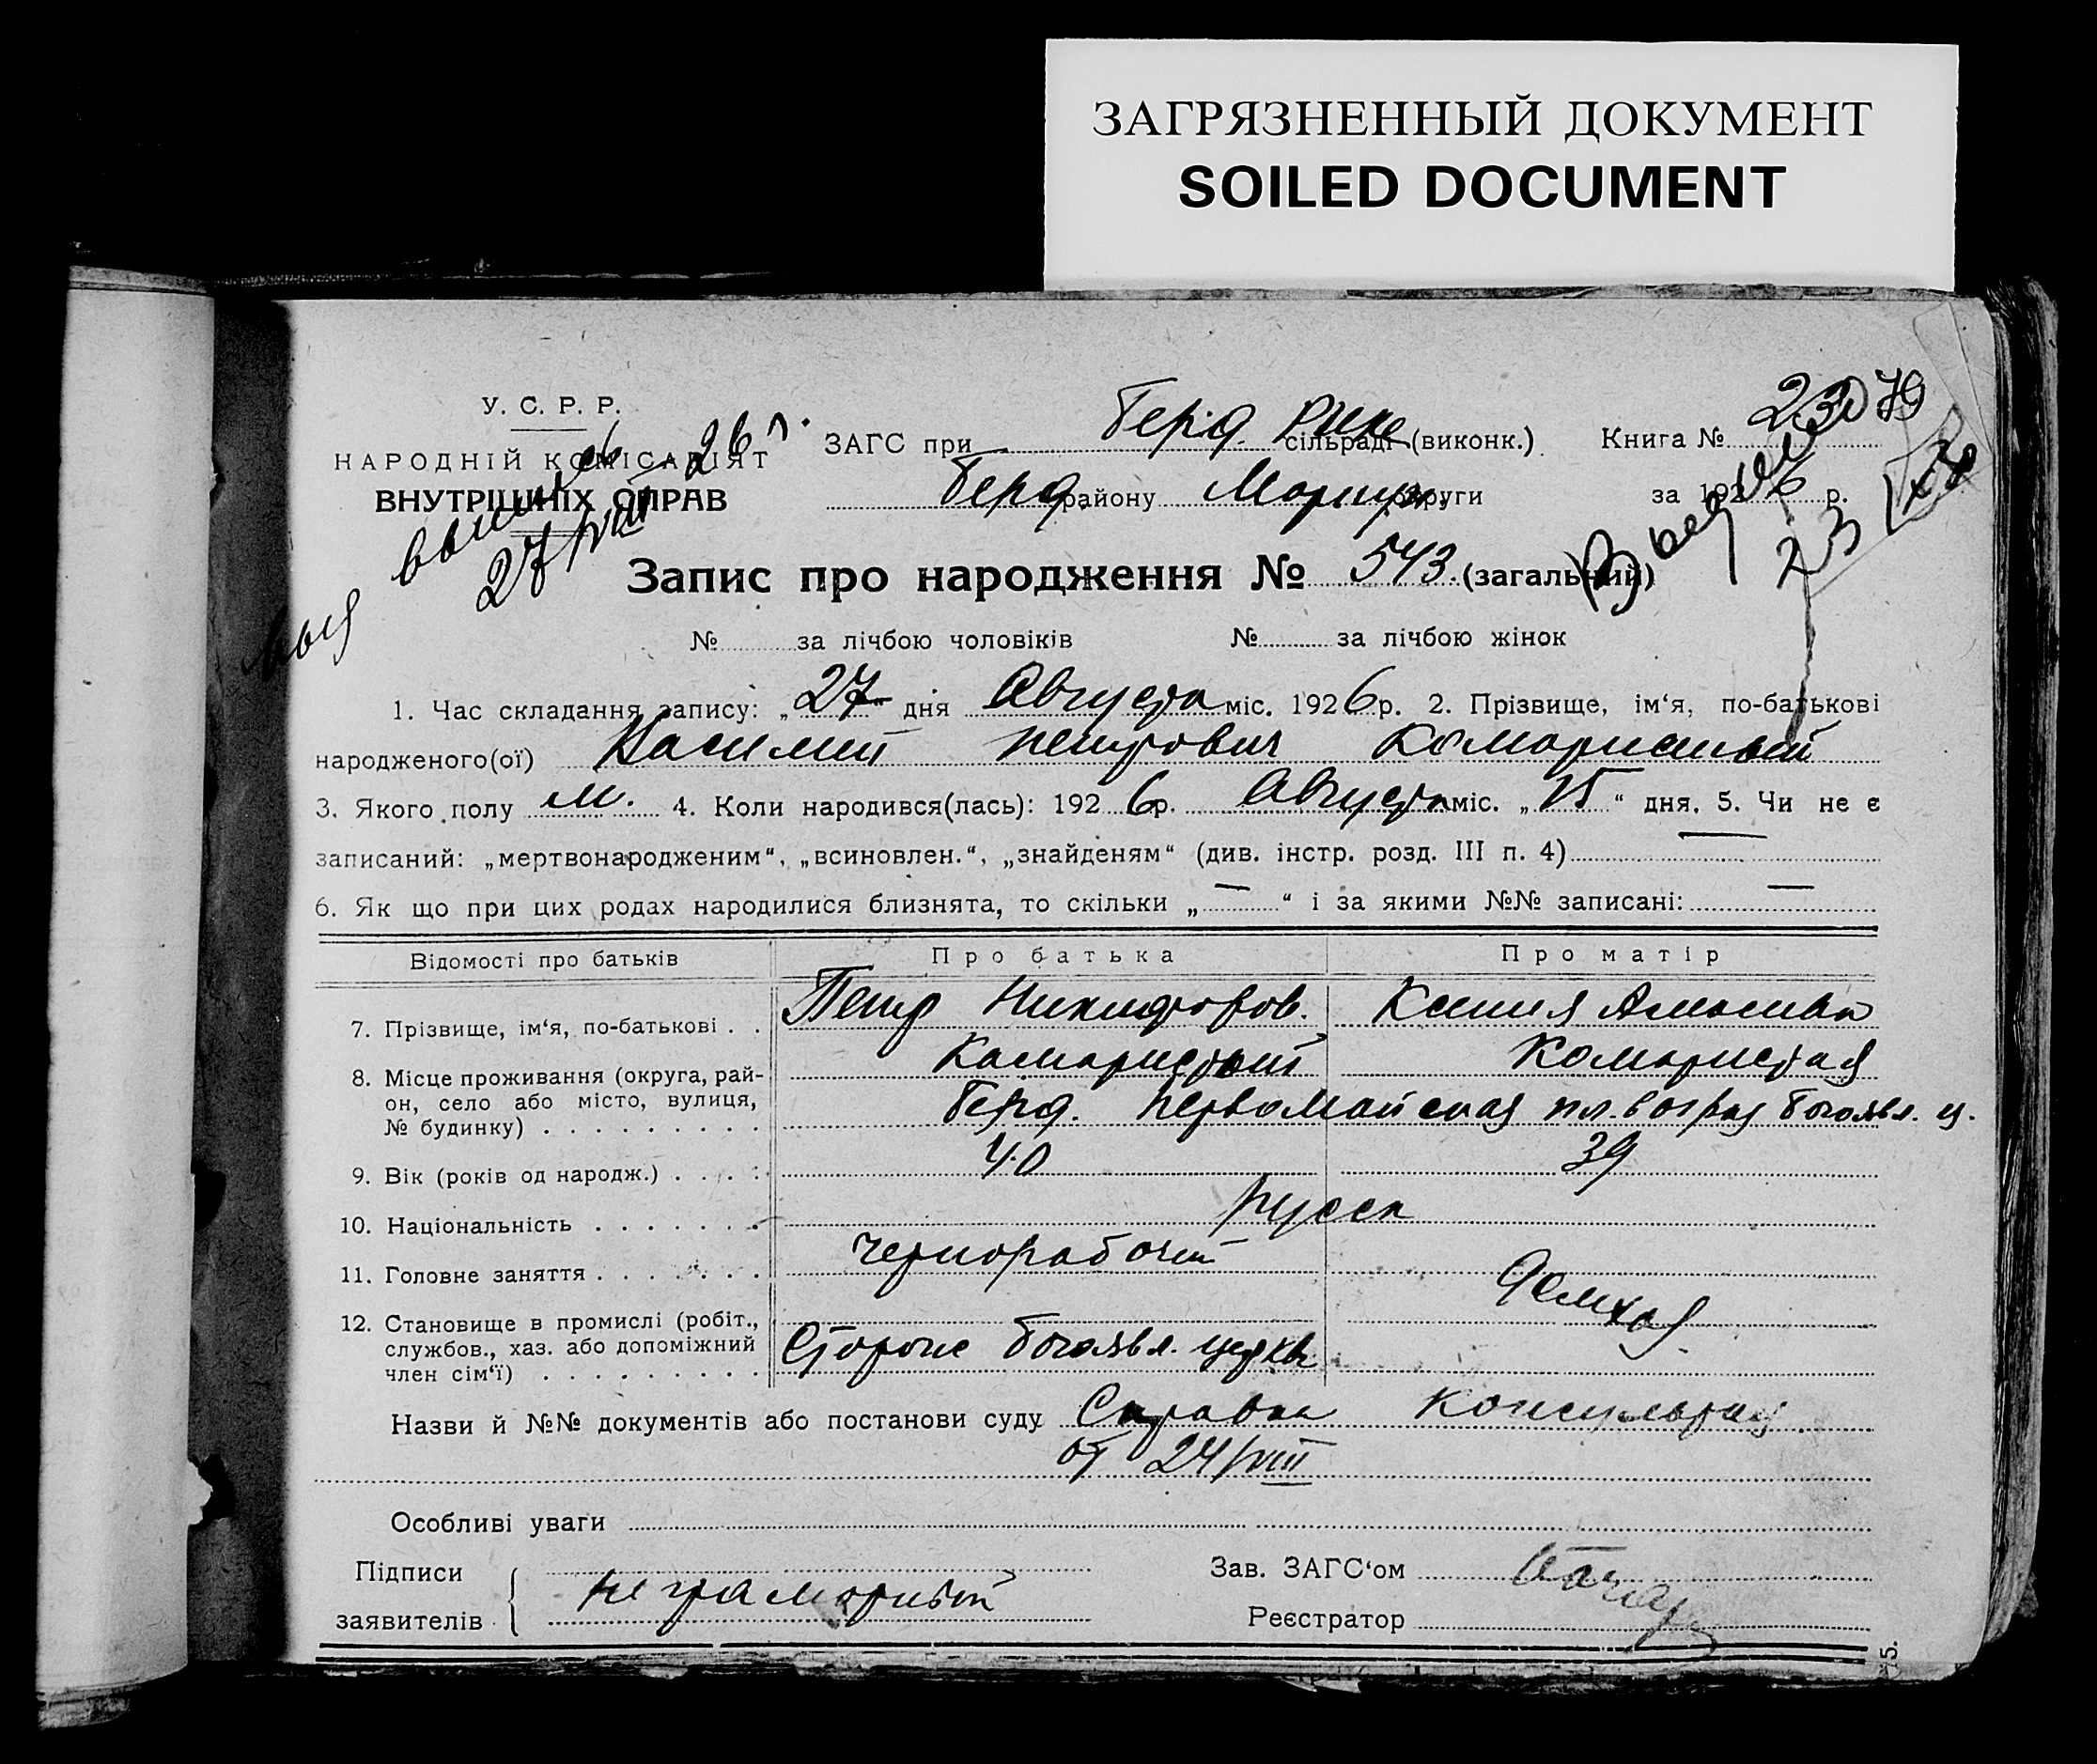 ЗАГРЯЗНЕННЫЙ ДОКУМЕНТ
SOILED DOCUMENT
У. С. Р. Р.
НАРОДНІЙ КОМІСАРІЯТ
ВНУТРІШНІХ СПРАВ
27/VIII 26 г.
ЗАГС при Берд. РИКе сільраді (виконк.)
Книга №
Берд. району Мариуп. округи
за 1926 р.
Запис про народження № 543. (загальний)
№ за лічбою чоловіків № за лічбою жінок
1. Час складання запису: „27“ дня Августа міс. 1926 р. 2. Прізвище, ім‘я, по-батькові
народженого(ої) Василий Петрович Комаристый
3. Якого полу м. 4. Коли народився(лась): 1926 р. Августа міс. „15“ дня. 5. Чи не є
записаний: „мертвонародженим“, „всиновлен.“, „знайденям“ (див. інстр. розд. III п. 4) —
6. Як що при цих родах народилися близнята, то скільки „—“ і за якими №№ записані: —
Відомості про батьків Про батька Про матір
7. Прізвище, ім‘я, по-батькові . . Петр Никифоров. Ксения
Комаристый Комаристая
8. Місце проживання (округа, рай-
он, село або місто, вулиця,
№ будинку) . . . . . . . . . Берд. Первомайская пл. Богоявл. ц.
9. Вік (років од народж.) . . . . 40 39
10. Національність . . . . . . . русск
11. Головне заняття . . . . . . . чернорабочий
12. Становище в промислі (робіт.,
службов., хаз. або допоміжний
член сім‘ї) . . . . . . . . . Сторож Богоявл. церкви
Назви й №№ документів або постанови суду Справка Консультац
от 24/VIII
Особливі уваги
Підписи
заявителів неграмотный
Зав. ЗАГС‘ом
Реєстратор